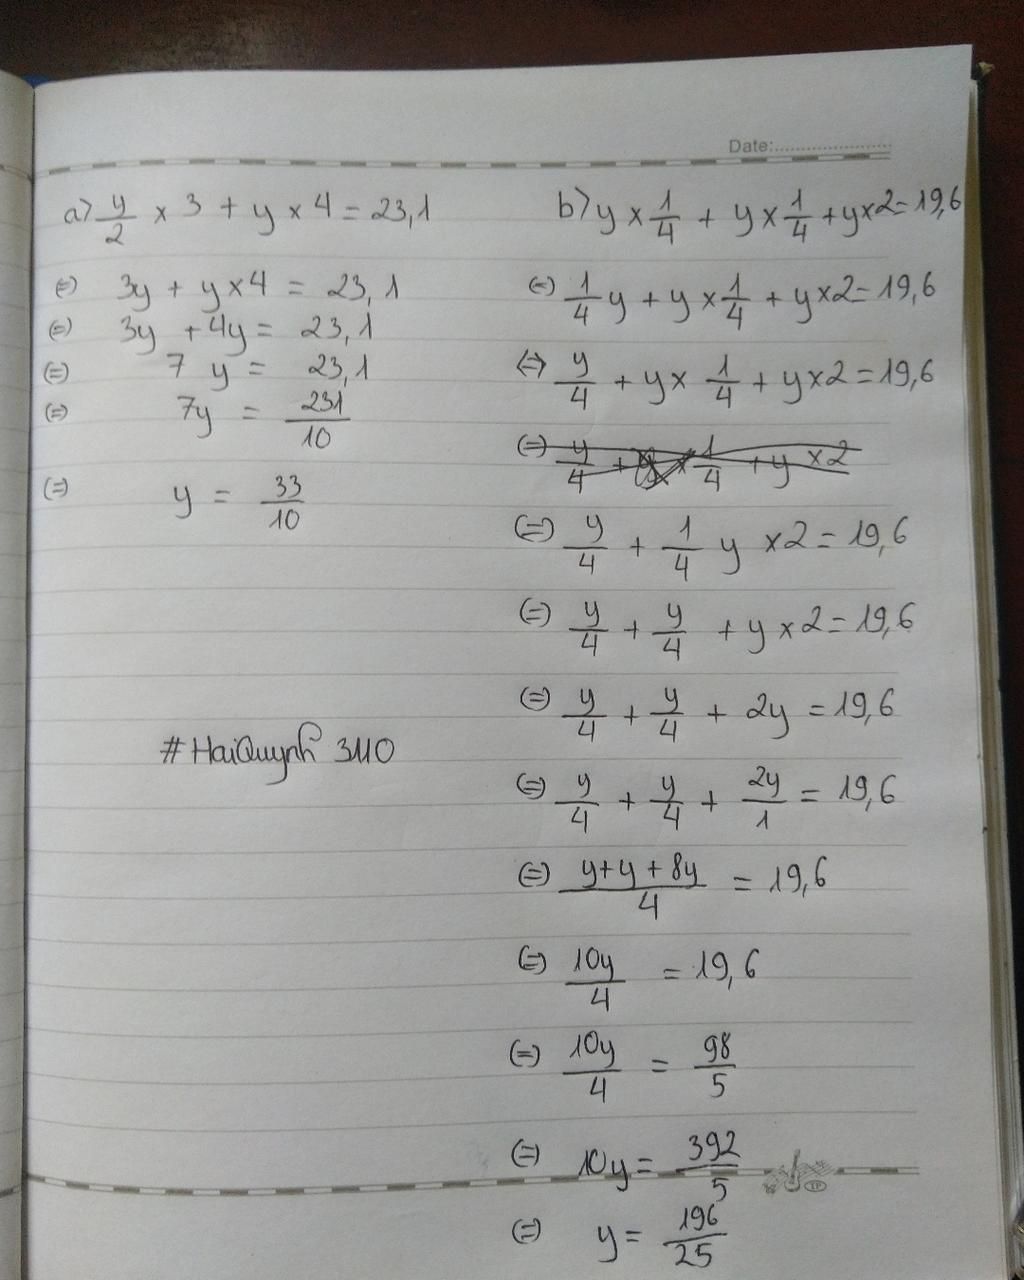 Date:
a) y/2 x 3 + y x 4 = 23,1
(=) 3y + y x 4 = 23,1
(=) 3y + 4y = 23,1
(=) 7 y = 23,1
(=) 7y = 231/10
(=) y = 33/10
#HaiQuynh 3110
b) y x 1/4 + y x 1/4 + y x 2 = 19,6
(=) 1/4 y + y x 1/4 + y x 2 = 19,6
(=) y/4 + y x 1/4 + y x 2 = 19,6
(=) y/4 + y x 1/4 + y x 2
(=) y/4 + 1/4 y x 2 = 19,6
(=) y/4 + y/4 + y x 2 = 19,6
(=) y/4 + y/4 + 2y = 19,6
(=) y/4 + y/4 + 2y/1 = 19,6
(=) y+y+8y/4 = 19,6
(=) 10y/4 = 19,6
(=) 10y/4 = 98/5
(=) 10y = 392/5
(=) y = 196/25
TP